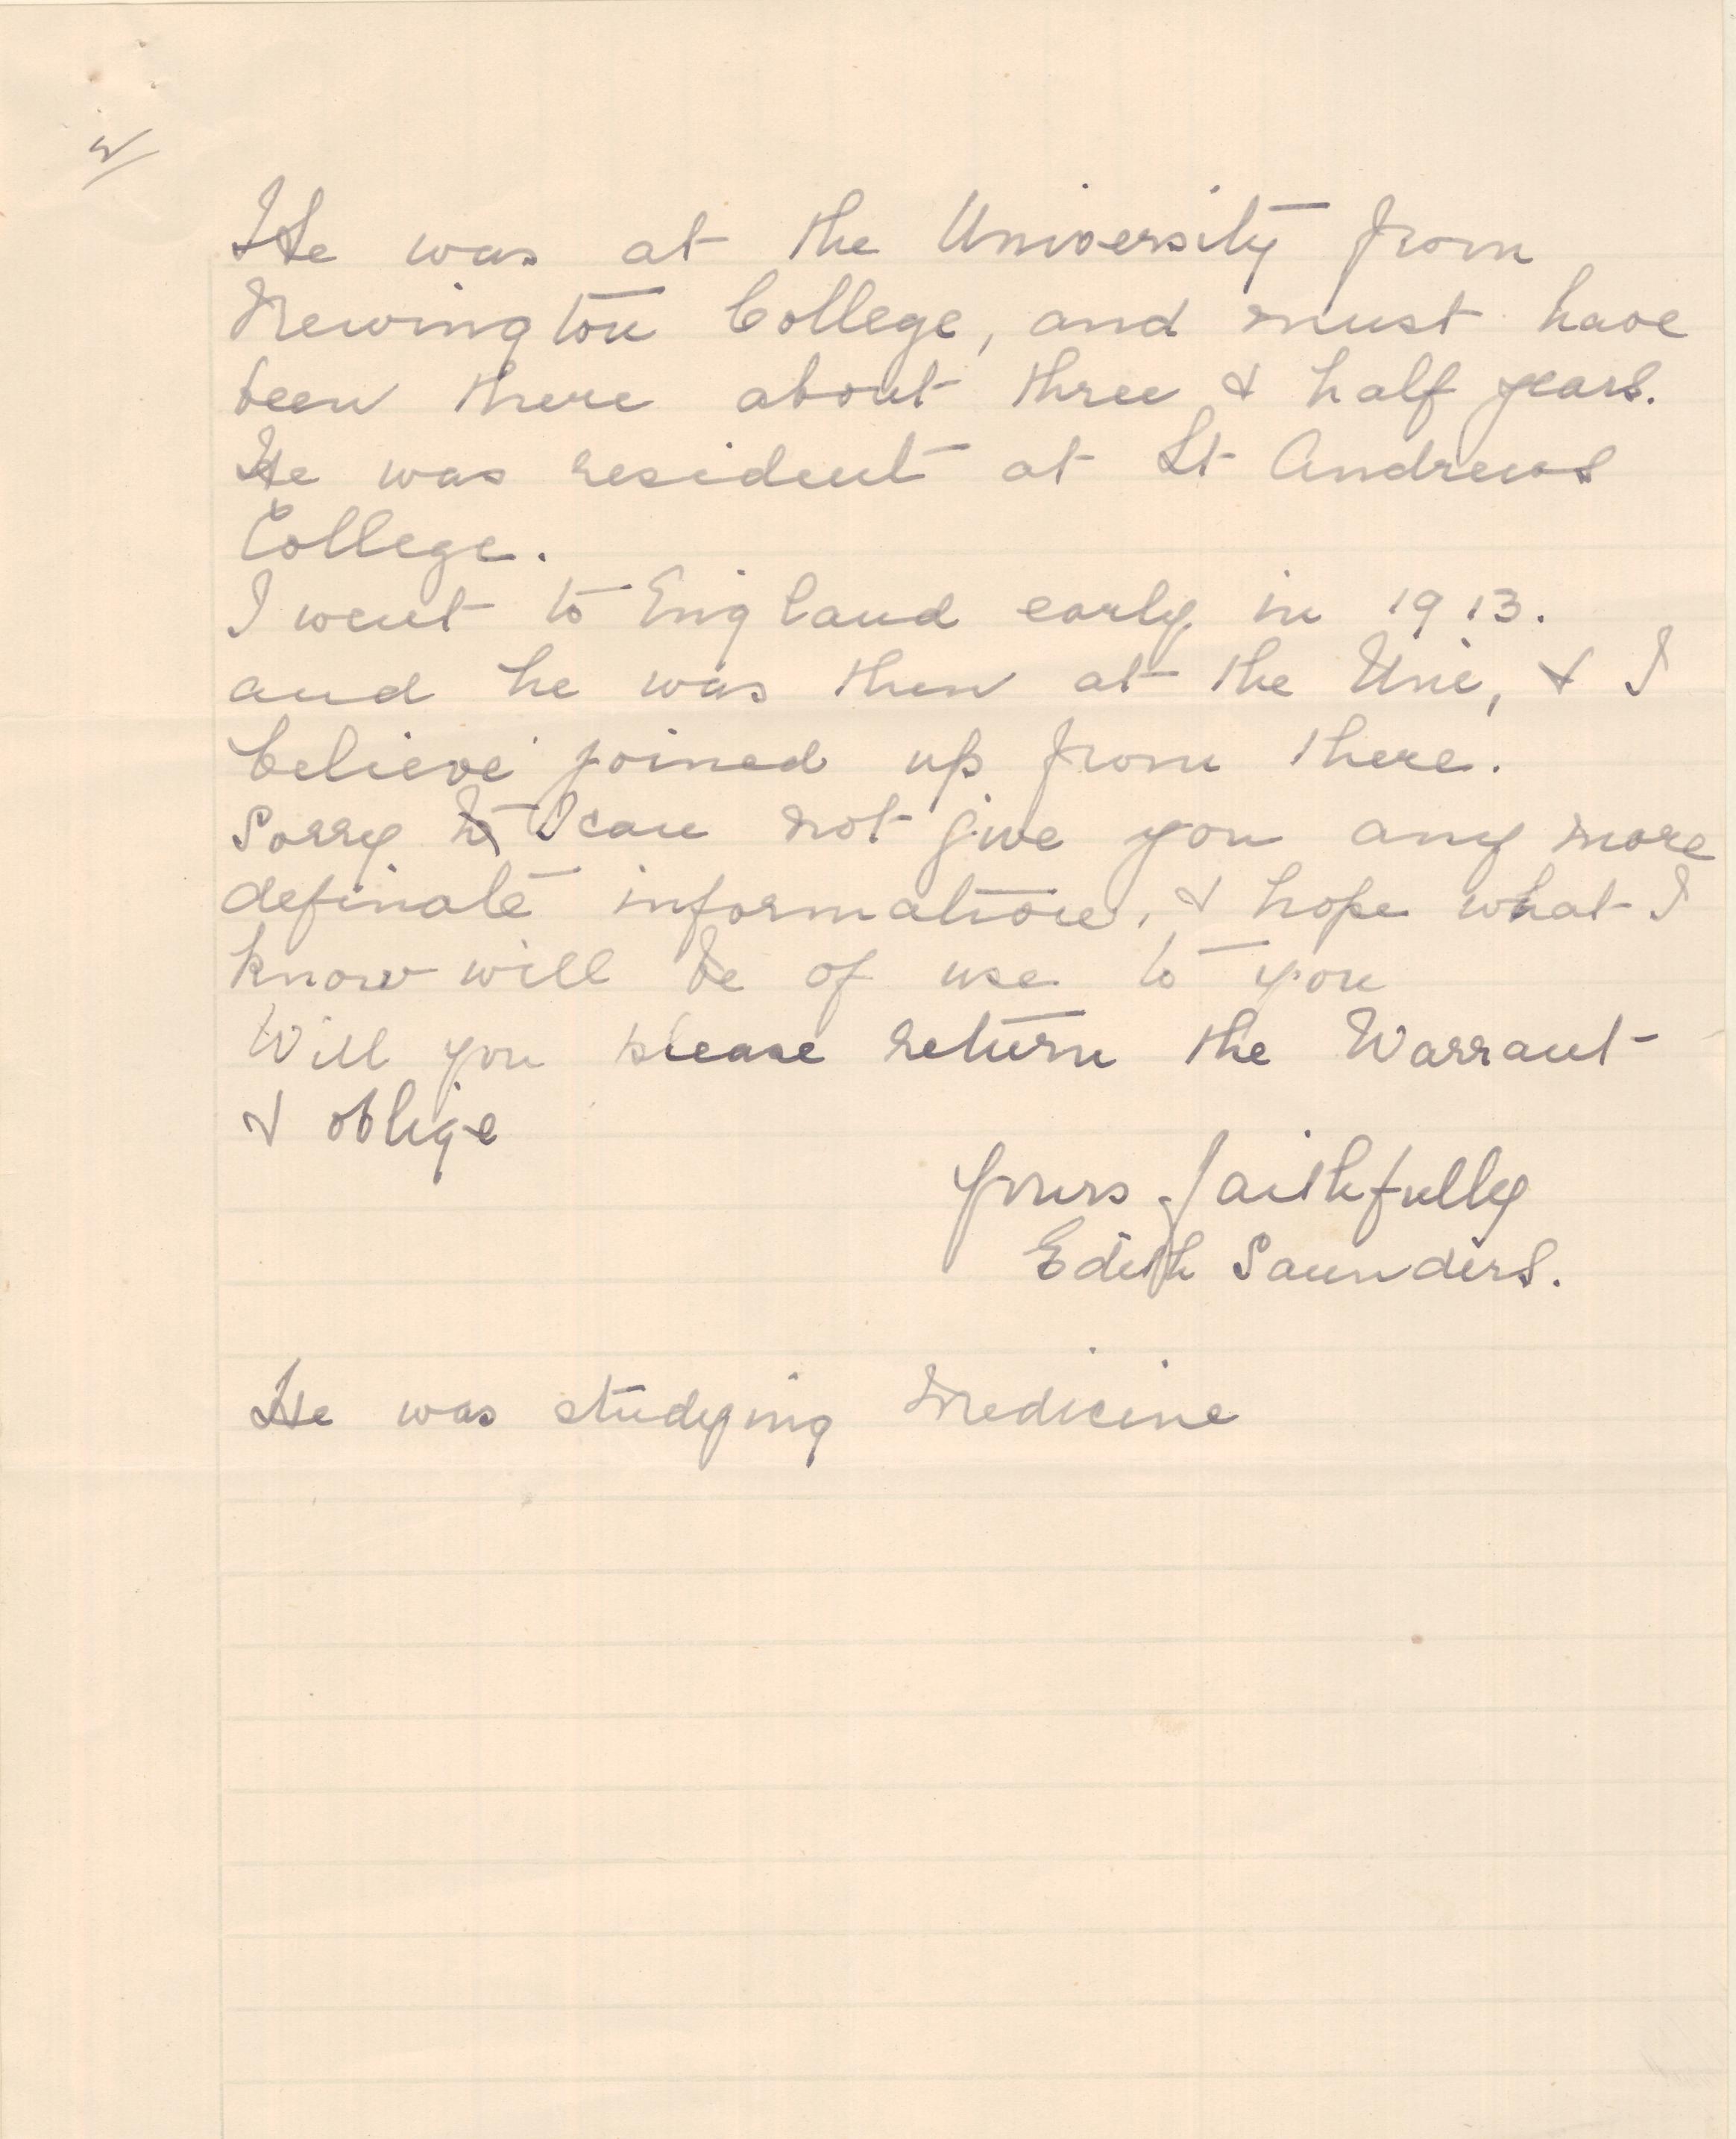 He was at the University from
Newington College, and must have
been there about three & half years.
He was resident at St Andrews
College.
I went to England early in 1913.
and he was then at the Uni, & I
believe joined up from there.
Sorry I can not give you any more
definate information, & hope what I
know will be of use to you
Will you please return the Warrant
& oblige
Yours faithfully
Edith Saunders.
He was studying Medicine